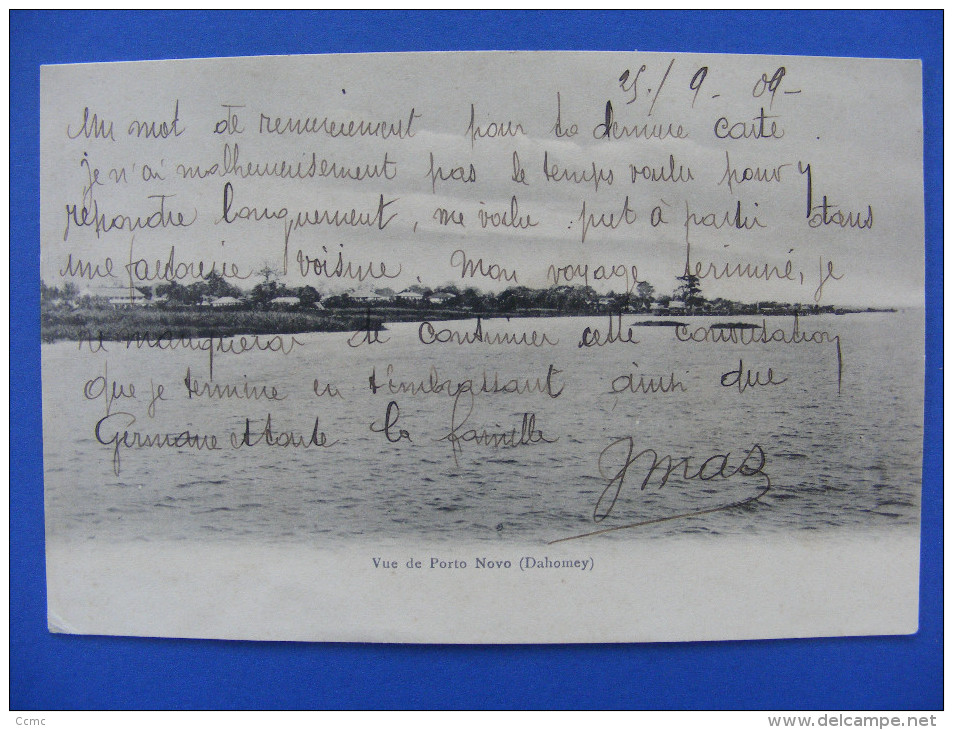 25 / 9 - 09 -
Un mot de remerciement pour ta dernière carte.
je n'ai malheureusement pas le temps voulu pour y
répondre longuement, me voilu pret à partir dans
une voisine. Mon voyage terminé, je
ne manquerai de continuer cette conversation
que je termine en t'embrassant ainsi que
Germaine et toute la famille
JMas
Vue de Porto Novo (Dahomey)
Ccmc
http://www.delcampe.net